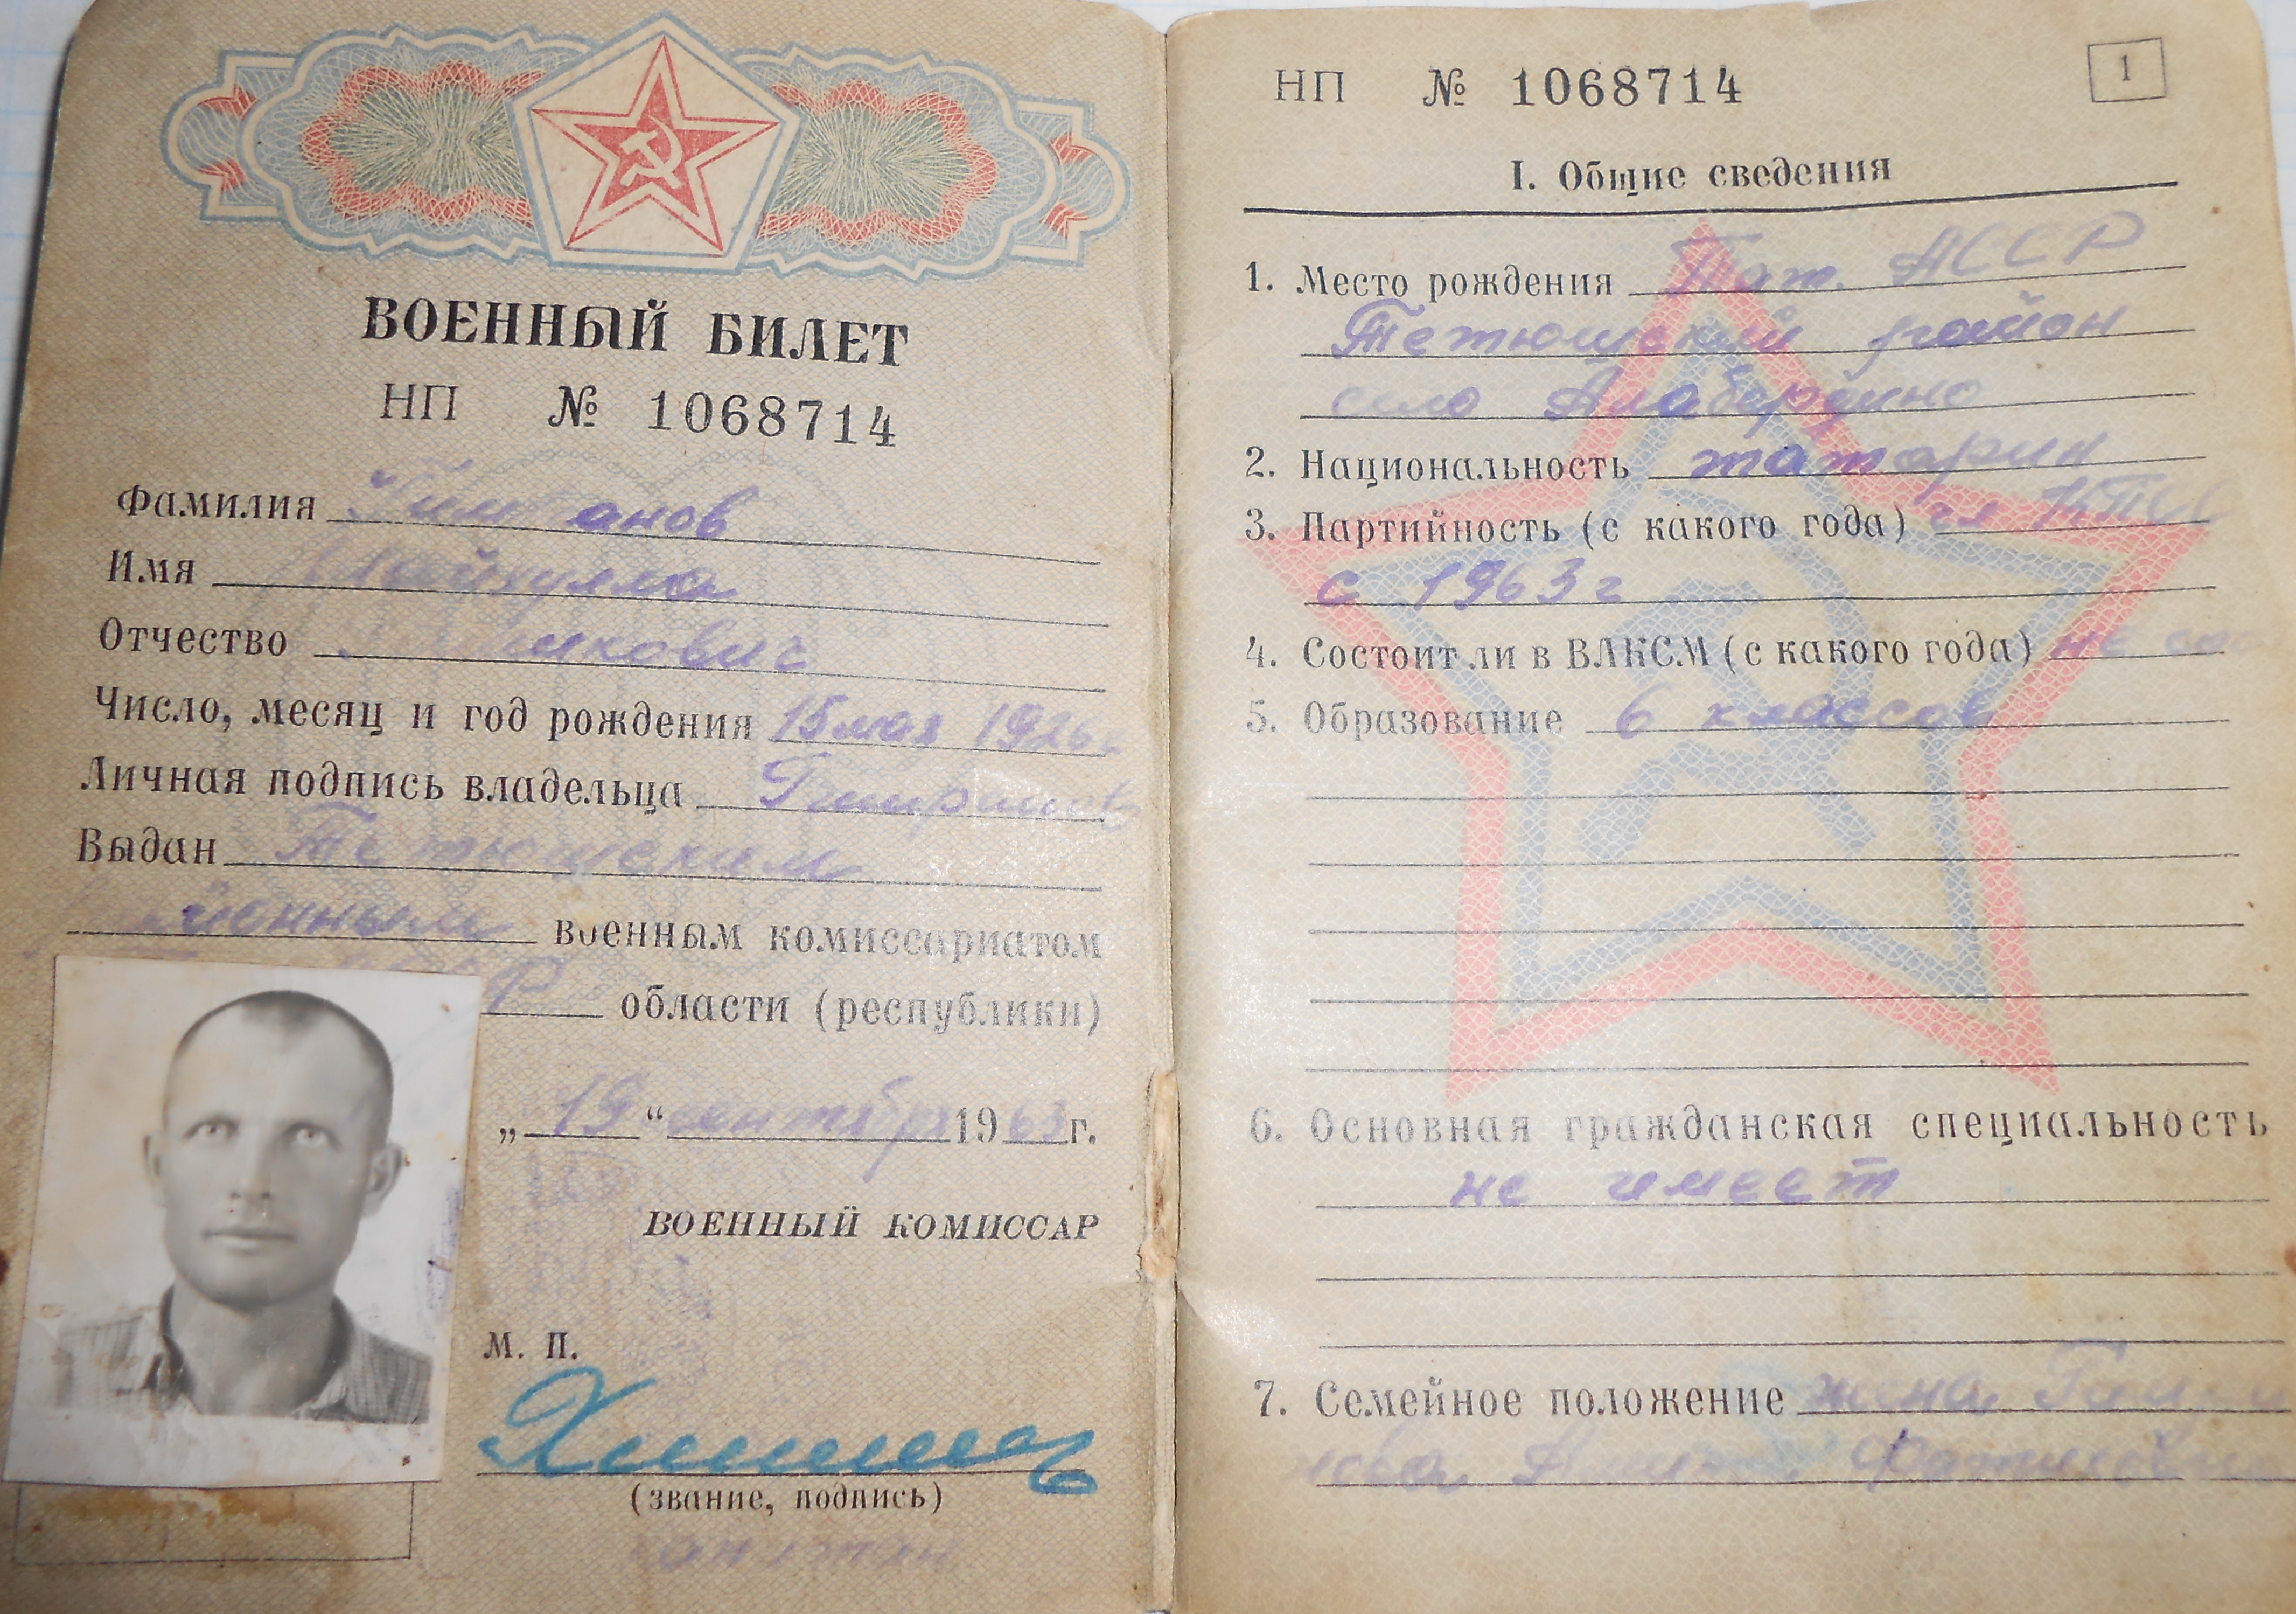 ВОЕННЫЙ БИЛЕТ
НП № 1068714
Фамилия
Имя
Отчество
Число, месяц и год рождения 15 мая 1926 г.
Личная подпись владельца
Выдан Тетюшским
районным военным комиссариатом
области (республики)
„ 19 “ сентября 1963 г.
ВОЕННЫЙ КОМИССАР
М. П.
(звание, подпись)
НП № 1068714
1
I. Общие сведения
1. Место рождения Тат. АССР
Тетюшский район
село Алабердино
2. Национальность татарин
3. Партийность (с какого года) чл КПСС
с 1963 г
4. Состоит ли в ВЛКСМ (с какого года) не
5. Образование 6 классов
6. Основная гражданская специальность
не имеет
7. Семейное положение жена